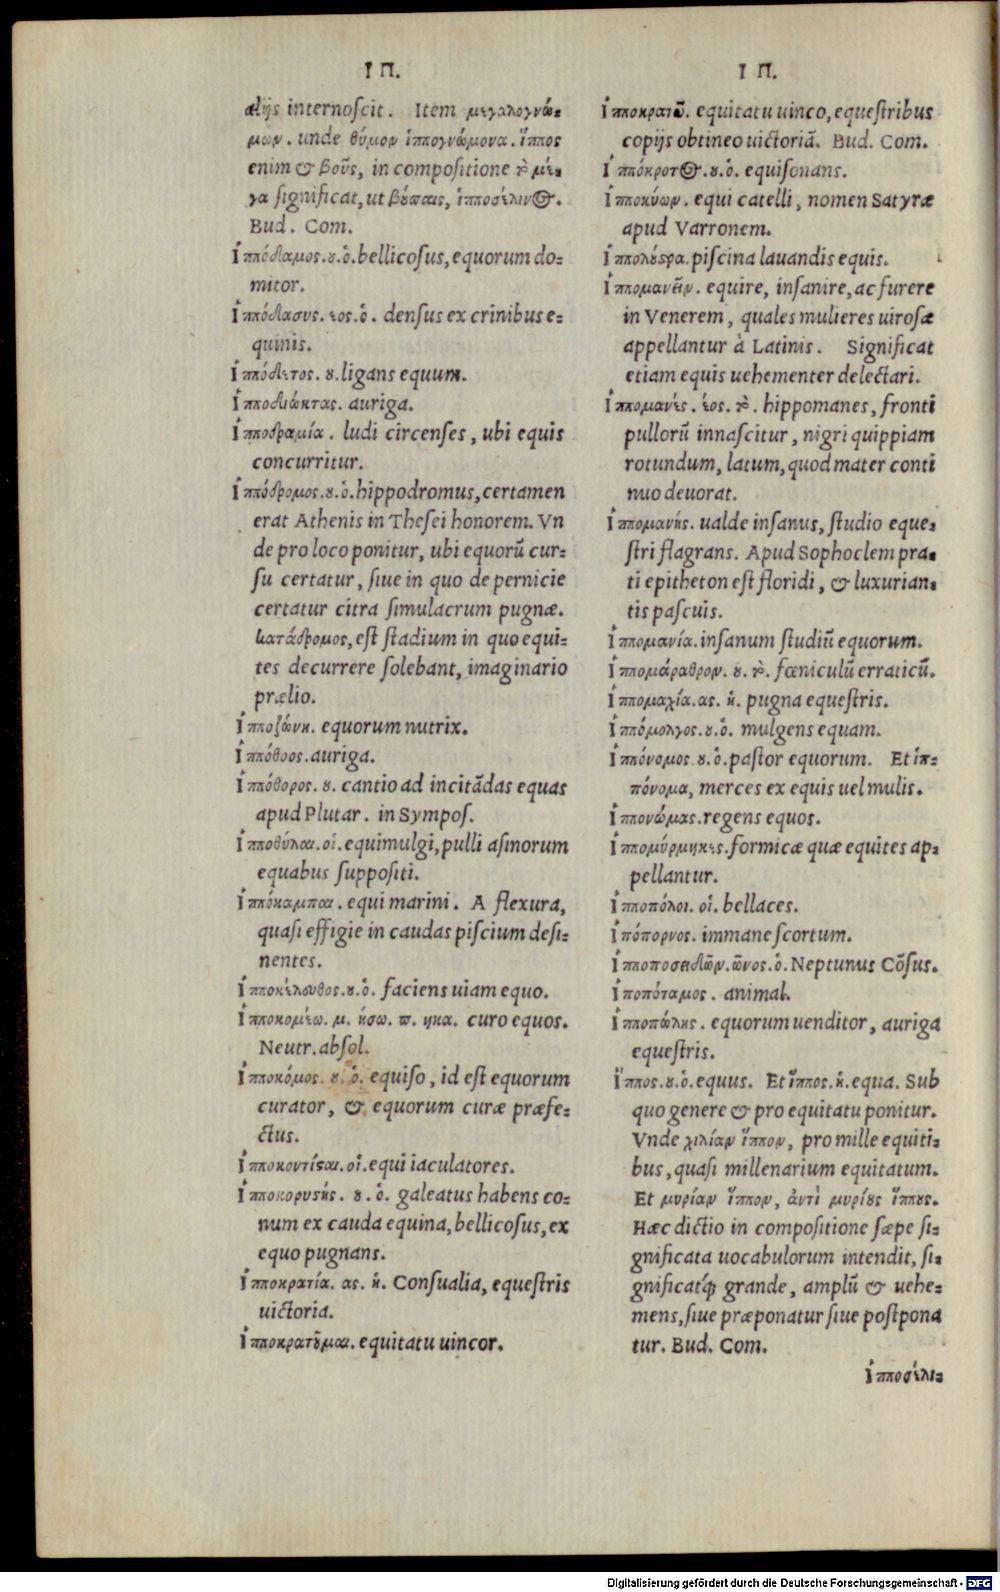 ΙΠ.
alijs internoscit. Item μεγαλογνώ-
μων. unde θύμον ἱππογνώμονα. ἵππος
enim & βοῦς, in compositione τὸ μέ-
γα significat, ut βούπαις, ἱπποσέλινος.
Bud. Com.
Ἱππόδαμος. ου. ὁ. bellicosus, equorum do-
mitor.
Ἱππόδασυς. εος. ὁ. densus ex crinibus e-
quinis.
Ἱππόδετος. ου. ligans equum.
Ἱπποδιώκτας. auriga.
Ἱπποδραμία. ludi circenses, ubi equis
concurritur.
Ἱππόδρομος. ου. ὁ. hippodromus, certamen
erat Athenis in Thesei honorem. Vn
de pro loco ponitur, ubi equorũ cur-
su certatur, siue in quo de pernicie
certatur citra simulacrum pugnæ.
κατάδρομος, est stadium in quo equi-
tes decurrere solebant, imaginario
prælio.
Ἱπποζώνη. equorum nutrix.
Ἱππόθοος. auriga.
Ἱππόθορος. ου. cantio ad incitãdas equas
apud Plutar. in Sympos.
Ἱπποθύλαι. οἱ. equimulgi, pulli asinorum
equabus suppositi.
Ἱππόκαμπαι. equi marini. A flexura,
quasi effigie in caudas piscium desi-
nentes.
Ἱπποκέλευθος. ου. ὁ. faciens uiam equo.
Ἱπποκομέω. μ. ήσω. π. ηκα. curo equos.
Neutr. absol.
Ἱπποκόμος. ου. ὁ. equiso, id est equorum
curator, & equorum curæ præfe-
ctus.
Ἱπποκοντίσται. οἱ. equi iaculatores.
Ἱπποκορυστής. ου. ὁ. galeatus habens co-
num ex cauda equina, bellicosus, ex
equo pugnans.
Ἱπποκρατία. ας. ἡ. Consualia, equestris
uictoria.
Ἱπποκρατοῦμαι. equitatu uincor.
ΙΠ.
Ἱπποκρατῶ. equitatu uinco, equestribus
copijs obtineo uictoriã. Bud. Com.
Ἱππόκροτος. ου. ὁ. equisonans.
Ἱπποκύων. equi catelli, nomen Satyræ
apud Varronem.
Ἱππολούστρα. piscina lauandis equis.
Ἱππομανεῖν. equire, insanire, ac furere
in Venerem, quales mulieres uirosæ
appellantur à Latinis. Significat
etiam equis uehementer delectari.
Ἱππομανές. έος. τὸ. hippomanes, fronti
pullorũ innascitur, nigri quippiam
rotundum, latum, quod mater conti
nuo deuorat.
Ἱππομανής. ualde insanus, studio eque-
stri flagrans. Apud Sophoclem pra-
ti epitheton est floridi, & luxurian-
tis pascuis.
Ἱππομανία. insanum studiũ equorum.
Ἱππομάραθρον. ου. τὸ. fœniculũ erraticũ.
Ἱππομαχία. ας. ἡ. pugna equestris.
Ἱππόμολγος. ου. ὁ. mulgens equam.
Ἱππόνομος. ου. ὁ. pastor equorum. Et ἱπ-
πόνομα, merces ex equis uel mulis.
Ἱππονώμας. regens equos.
Ἱππομύρμηκες. formicæ quæ equites ap-
pellantur.
Ἱπποπόλοι. οἱ. bellaces.
Ἱπόπορνος. immane scortum.
Ἱπποποσειδῶν. ῶνος. ὁ. Neptunus Cõsus.
Ἱποπόταμος. animal.
Ἱπποπώλης. equorum uenditor, auriga
equestris.
Ἵππος. ου. ὁ. equus. Et ἵππος. ἡ. equa. Sub
quo genere & pro equitatu ponitur.
Vnde χιλίαν ἵππον, pro mille equiti-
bus, quasi millenarium equitatum.
Et μυρίαν ἵππον, ἀντὶ μυρίους ἵππους.
Hæc dictio in compositione sæpe si-
gnificata uocabulorum intendit, si-
gnificatq́ grande, amplũ & uehe-
mens, siue præponatur siue postpona
tur. Bud. Com.
Ἱπποσέλι-
Digitalisierung gefördert durch die Deutsche Forschungsgemeinschaft - DFG